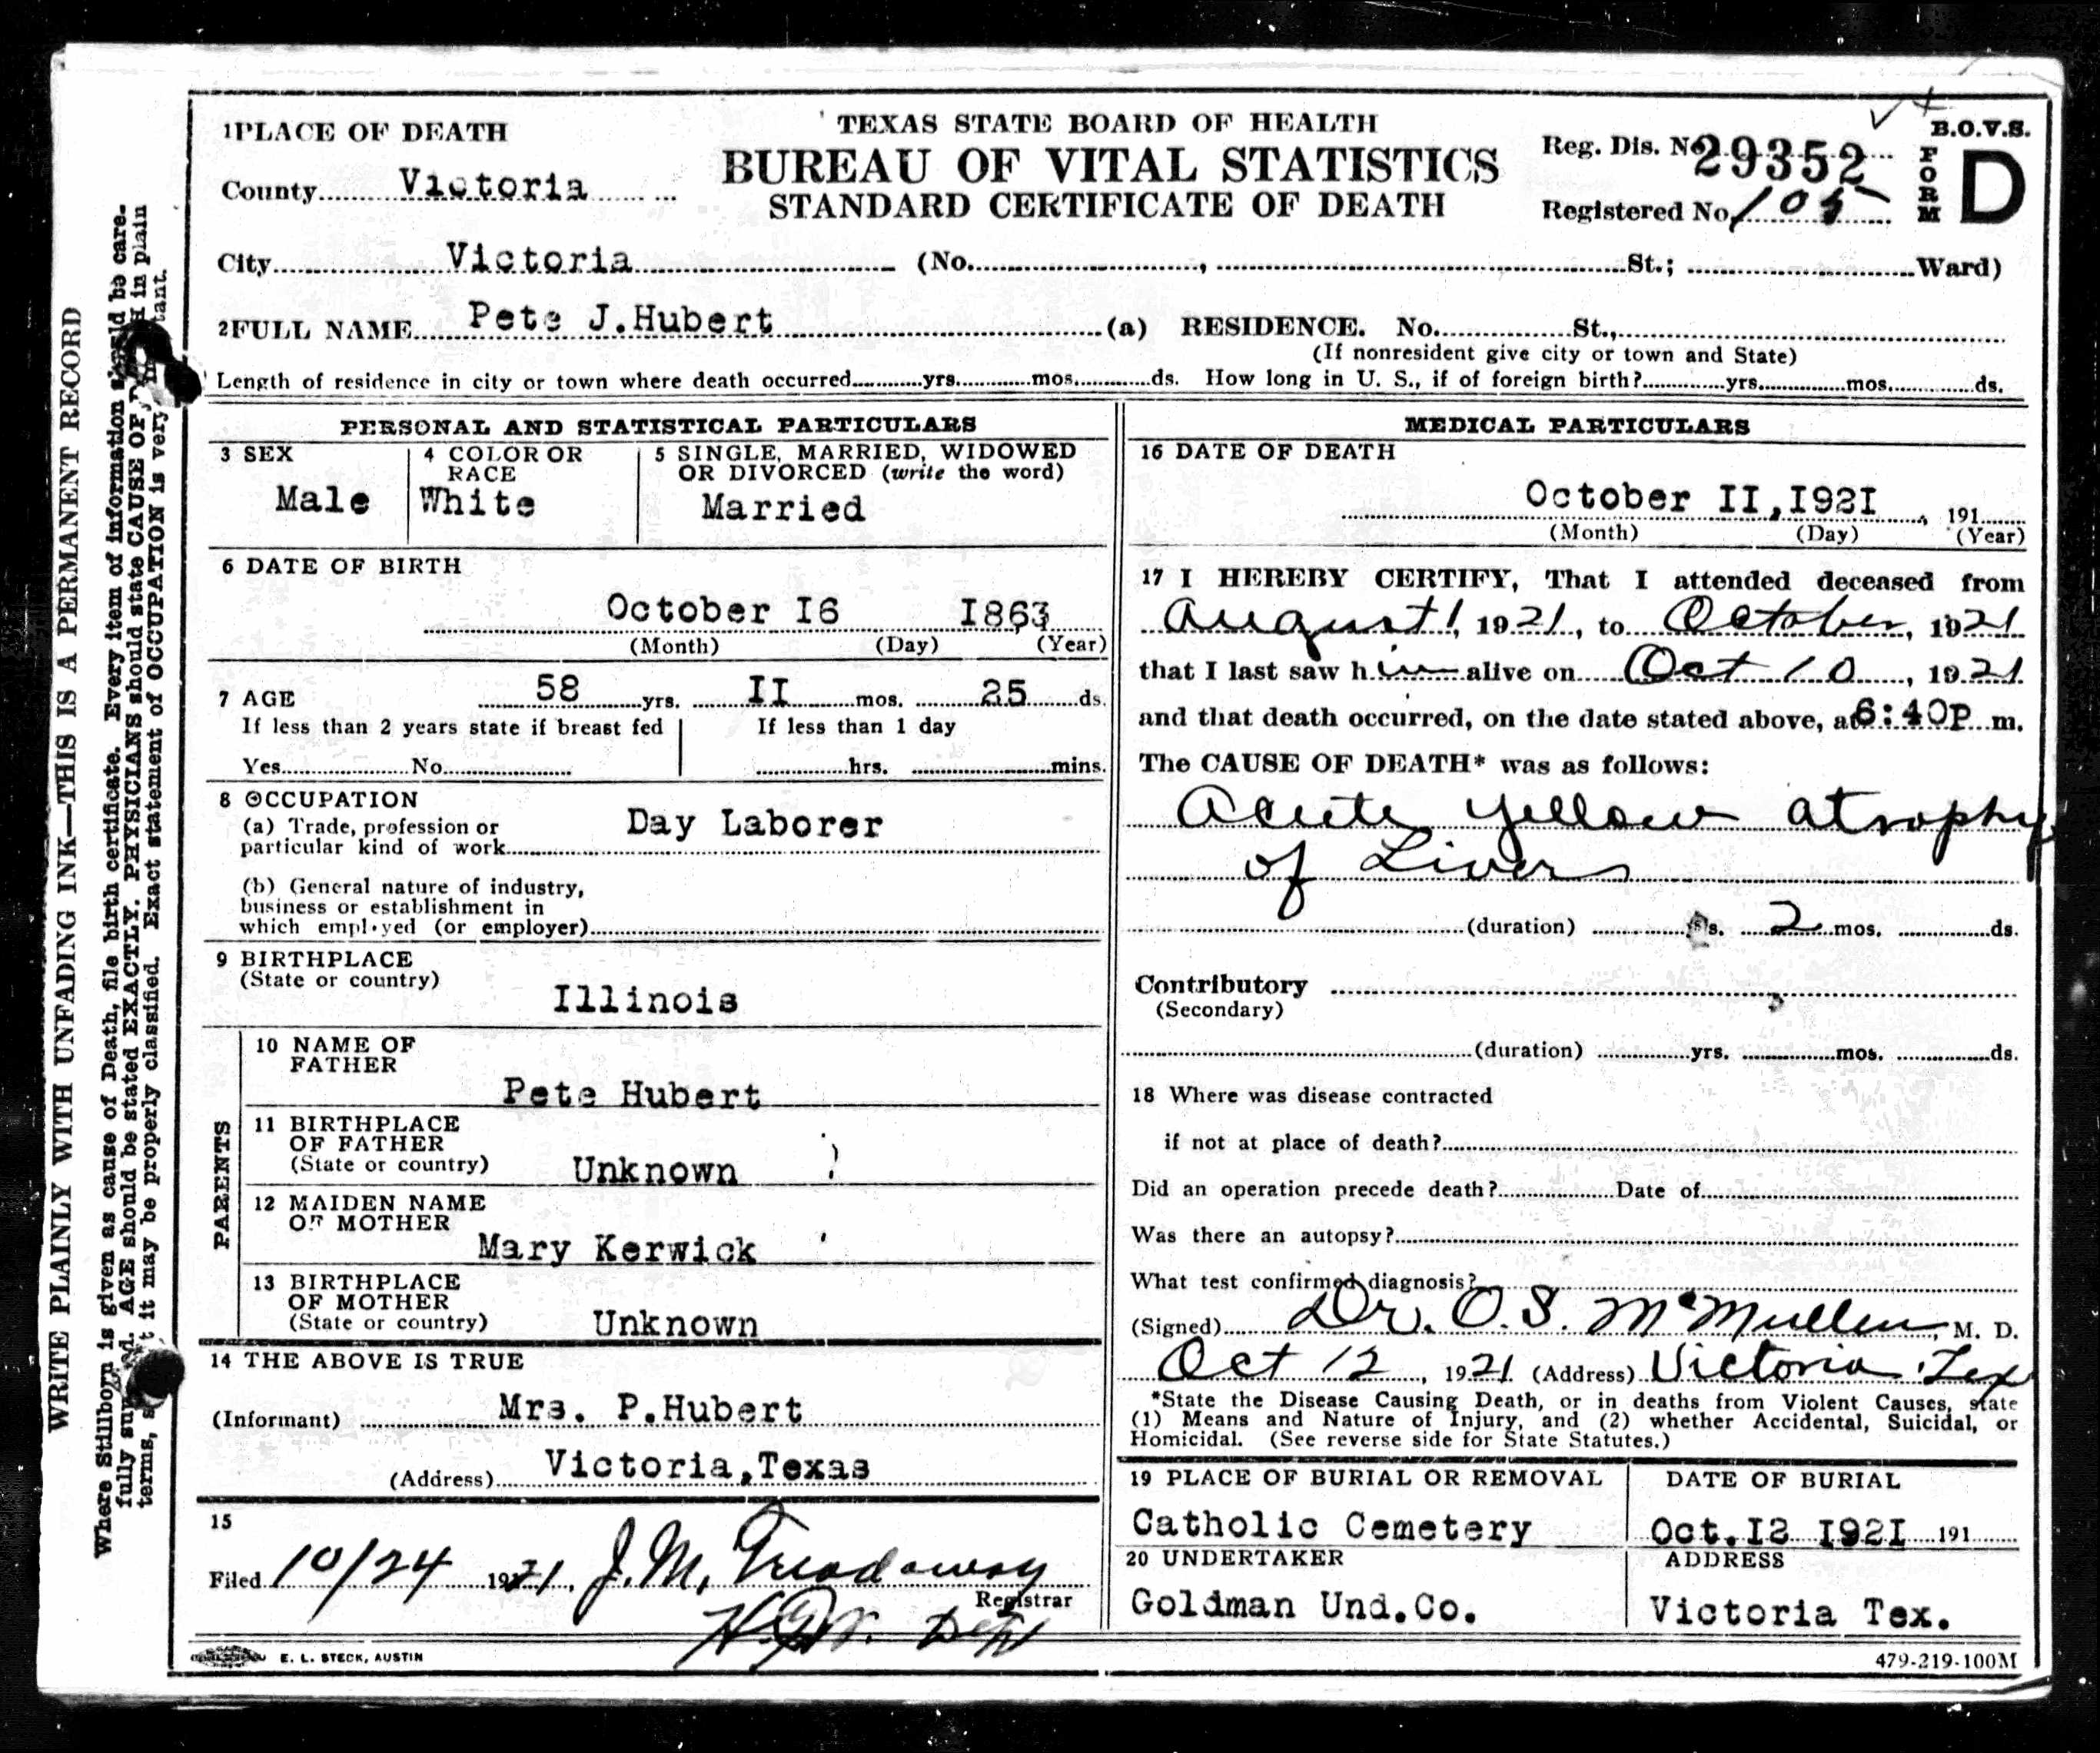 1 PLACE OF DEATH
TEXAS STATE BOARD OF HEALTH
BUREAU OF VITAL STATISTICS
STANDARD CERTIFICATE OF DEATH
Reg. Dis. No. 29352
Registered No. 105
B.O.V.S.
FORM D
County Victoria
City Victoria (No. , St.; Ward)
2 FULL NAME Pete J.Hubert (a) RESIDENCE. No. St.,
(If nonresident give city or town and State)
Length of residence in city or town where death occurred yrs. mos. ds. How long in U. S., if of foreign birth? yrs. mos. ds.
PERSONAL AND STATISTICAL PARTICULARS
3 SEX
Male
4 COLOR OR RACE
White
5 SINGLE, MARRIED, WIDOWED
OR DIVORCED (write the word)
Married
6 DATE OF BIRTH
October I6 I863
(Month) (Day) (Year)
7 AGE 58 yrs. II mos. 25 ds.
If less than 2 years state if breast fed
If less than 1 day
Yes No
hrs. mins.
8 OCCUPATION
(a) Trade, profession or
particular kind of work
Day Laborer
(b) General nature of industry,
business or establishment in
which employed (or employer)
9 BIRTHPLACE
(State or country)
Illinois
PARENTS
10 NAME OF
FATHER
Pete Hubert
11 BIRTHPLACE
OF FATHER
(State or country) Unknown
12 MAIDEN NAME
OF MOTHER
Mary Kerwick
13 BIRTHPLACE
OF MOTHER
(State or country) Unknown
14 THE ABOVE IS TRUE
(Informant) Mrs. P.Hubert
(Address) Victoria,Texas
15
Filed 10/24 1921, J.M. Treadaway
Registrar
E. L. STECK, AUSTIN
MEDICAL PARTICULARS
16 DATE OF DEATH
October II,I92I , 191
(Month) (Day) (Year)
17 I HEREBY CERTIFY, That I attended deceased from
August 1, 1921, to October, 1921
that I last saw him alive on Oct 10, 1921
and that death occurred, on the date stated above, at 6:40P m.
The CAUSE OF DEATH* was as follows:
Acute yellow atrophy
of Liver
(duration) yrs. 2 mos. ds.
Contributory
(Secondary)
(duration) yrs. mos. ds.
18 Where was disease contracted
if not at place of death?
Did an operation precede death? Date of
Was there an autopsy?
What test confirmed diagnosis?
(Signed) Dr. O.S. McMullen, M. D.
Oct 12, 1921 (Address) Victoria Tex
*State the Disease Causing Death, or in deaths from Violent Causes, state
(1) Means and Nature of Injury, and (2) whether Accidental, Suicidal, or
Homicidal. (See reverse side for State Statutes.)
19 PLACE OF BURIAL OR REMOVAL
Catholic Cemetery
DATE OF BURIAL
Oct.I2 I92I 191
20 UNDERTAKER
Goldman Und.Co.
ADDRESS
Victoria Tex.
479-219-100M
WRITE PLAINLY WITH UNFADING INK—THIS IS A PERMANENT RECORD
Where Stillborn is given as cause of Death, file birth certificate. Every item of information should be care-
fully supplied. AGE should be stated EXACTLY. PHYSICIANS should state CAUSE OF DEATH in plain
terms, so that it may be properly classified. Exact statement of OCCUPATION is very important.